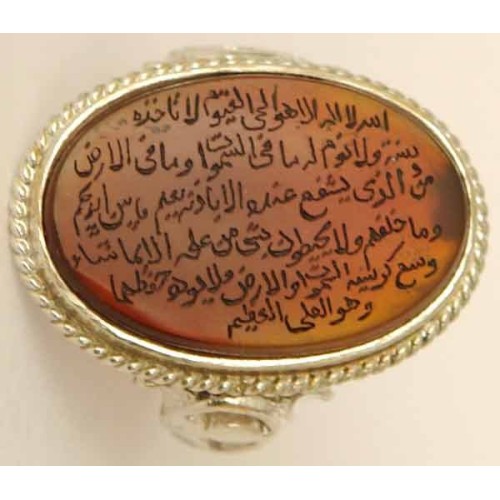 الله لا اله الا هو الحي القيوم لا تاخذه
سنة ولا نوم له ما في السموات وما في الارض
من الذي يشفع عنده الا باذنه يعلم ما بين ايديهم
وما خلفهم ولا يحيطون بشئ من علمه الا بما شاء
وسع كرسيه السموات والارض ولا يوده حفظهما
وهو العلي العظيم